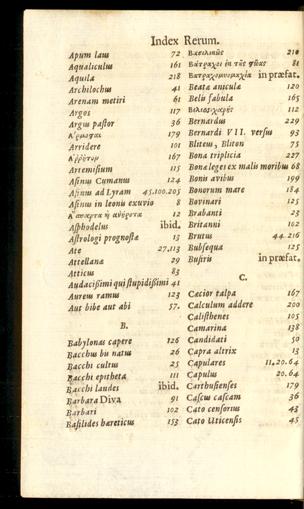 Index Rerum.
Apum laus 72
Aqualiculus 161
Aquila 218
Archilochus 41
Arenam metiri 61
Argos 117
Argus pastor 36
179
Arridere 101
167
Artemisium 115
Asinus Cumanus 124
Asinus ad Lyram 45.100.205
Asinus in leonis exuvio 8
12
Asphodelus ibid.
Astrologi prognostæ 13
Ate 27.113
Attellana 29
Atticus 83
Audacissimi qui stupidissimi 41
Aurem ramus 123
Aut bibe aut abi 57.
B.
Babylonas capere 126
Bacchus bu natus 26
Bacchi cultus 25
Bacchi epitheta 111
Bacchi laudes ibid.
Barbara Diva 91
Barbari 102
Basilides hæreticus 153
Βασιλινῶς 210
Βάτραχοι ἐπ τῆς 81
Βατραχομυομαχία in præfat.
Beata anicula 120
Belis fabula 165
112
Bernardus 229
Bernardi VII. versus 93
Bliteus, Bliton 75
Bona triplicia 227
Bonæ leges ex malis moribus 68
Bonis avibus 199
Bonorum mare 184
Bovinari 125
Brabanti 23
Britanni 102
Brutus 44.216
Bubsequa 125
Busiris in præfat.
C.
Cæcior talpa 167
Calculum addere 200
Calisthenes 105
Camarina 138
Candidati 50
Capra altrix 13
Capulares 11.20.64
Capulus 20.64
Carthusienses 179
Cascus cascam 36
Cato censorius 43
Cato Uticensis 45